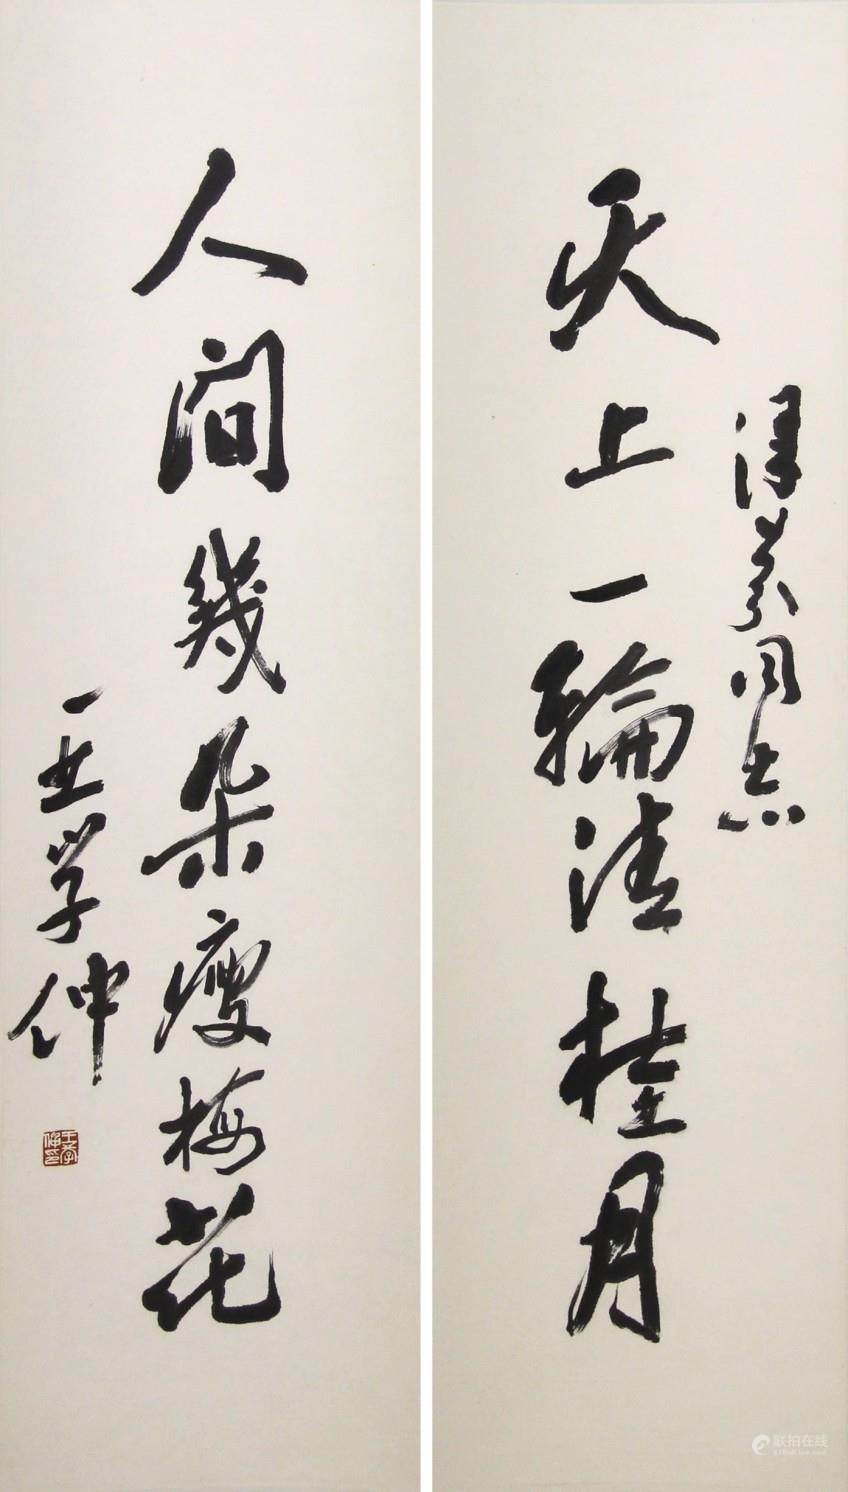 天上一輪清桂月
津芬同志
人间幾朵瘦梅花
王学仲
王学仲印
联拍在线